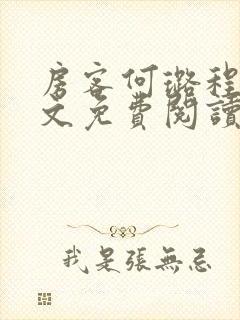 房客何璐程
文免費閱讀
我是張無忌